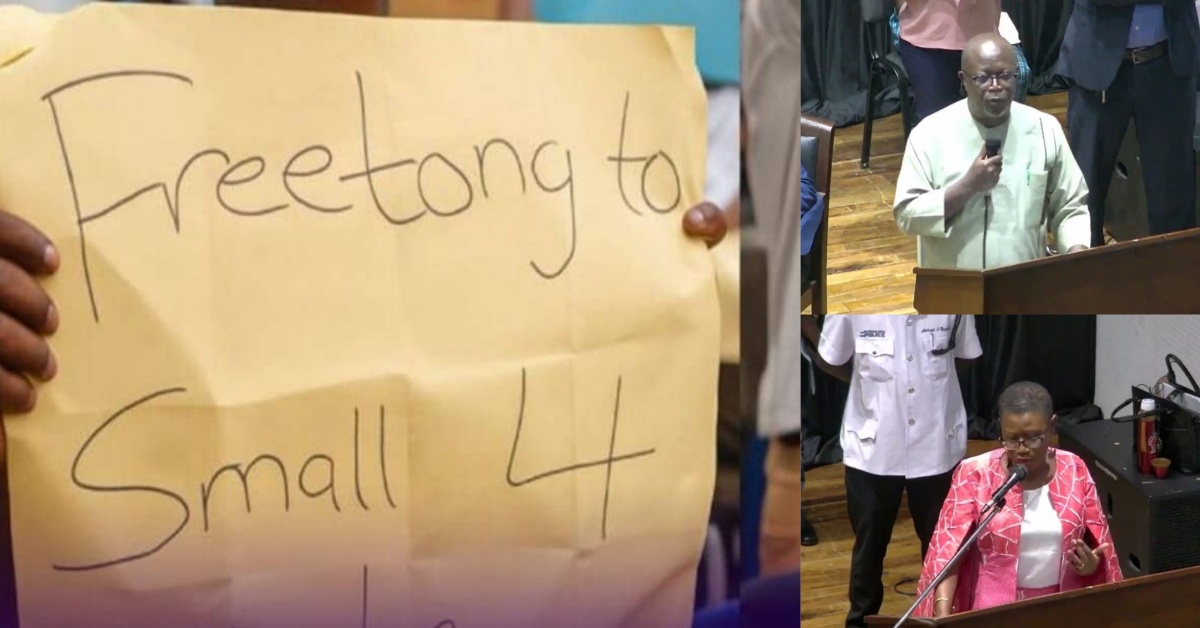 Freetong to
Small 4